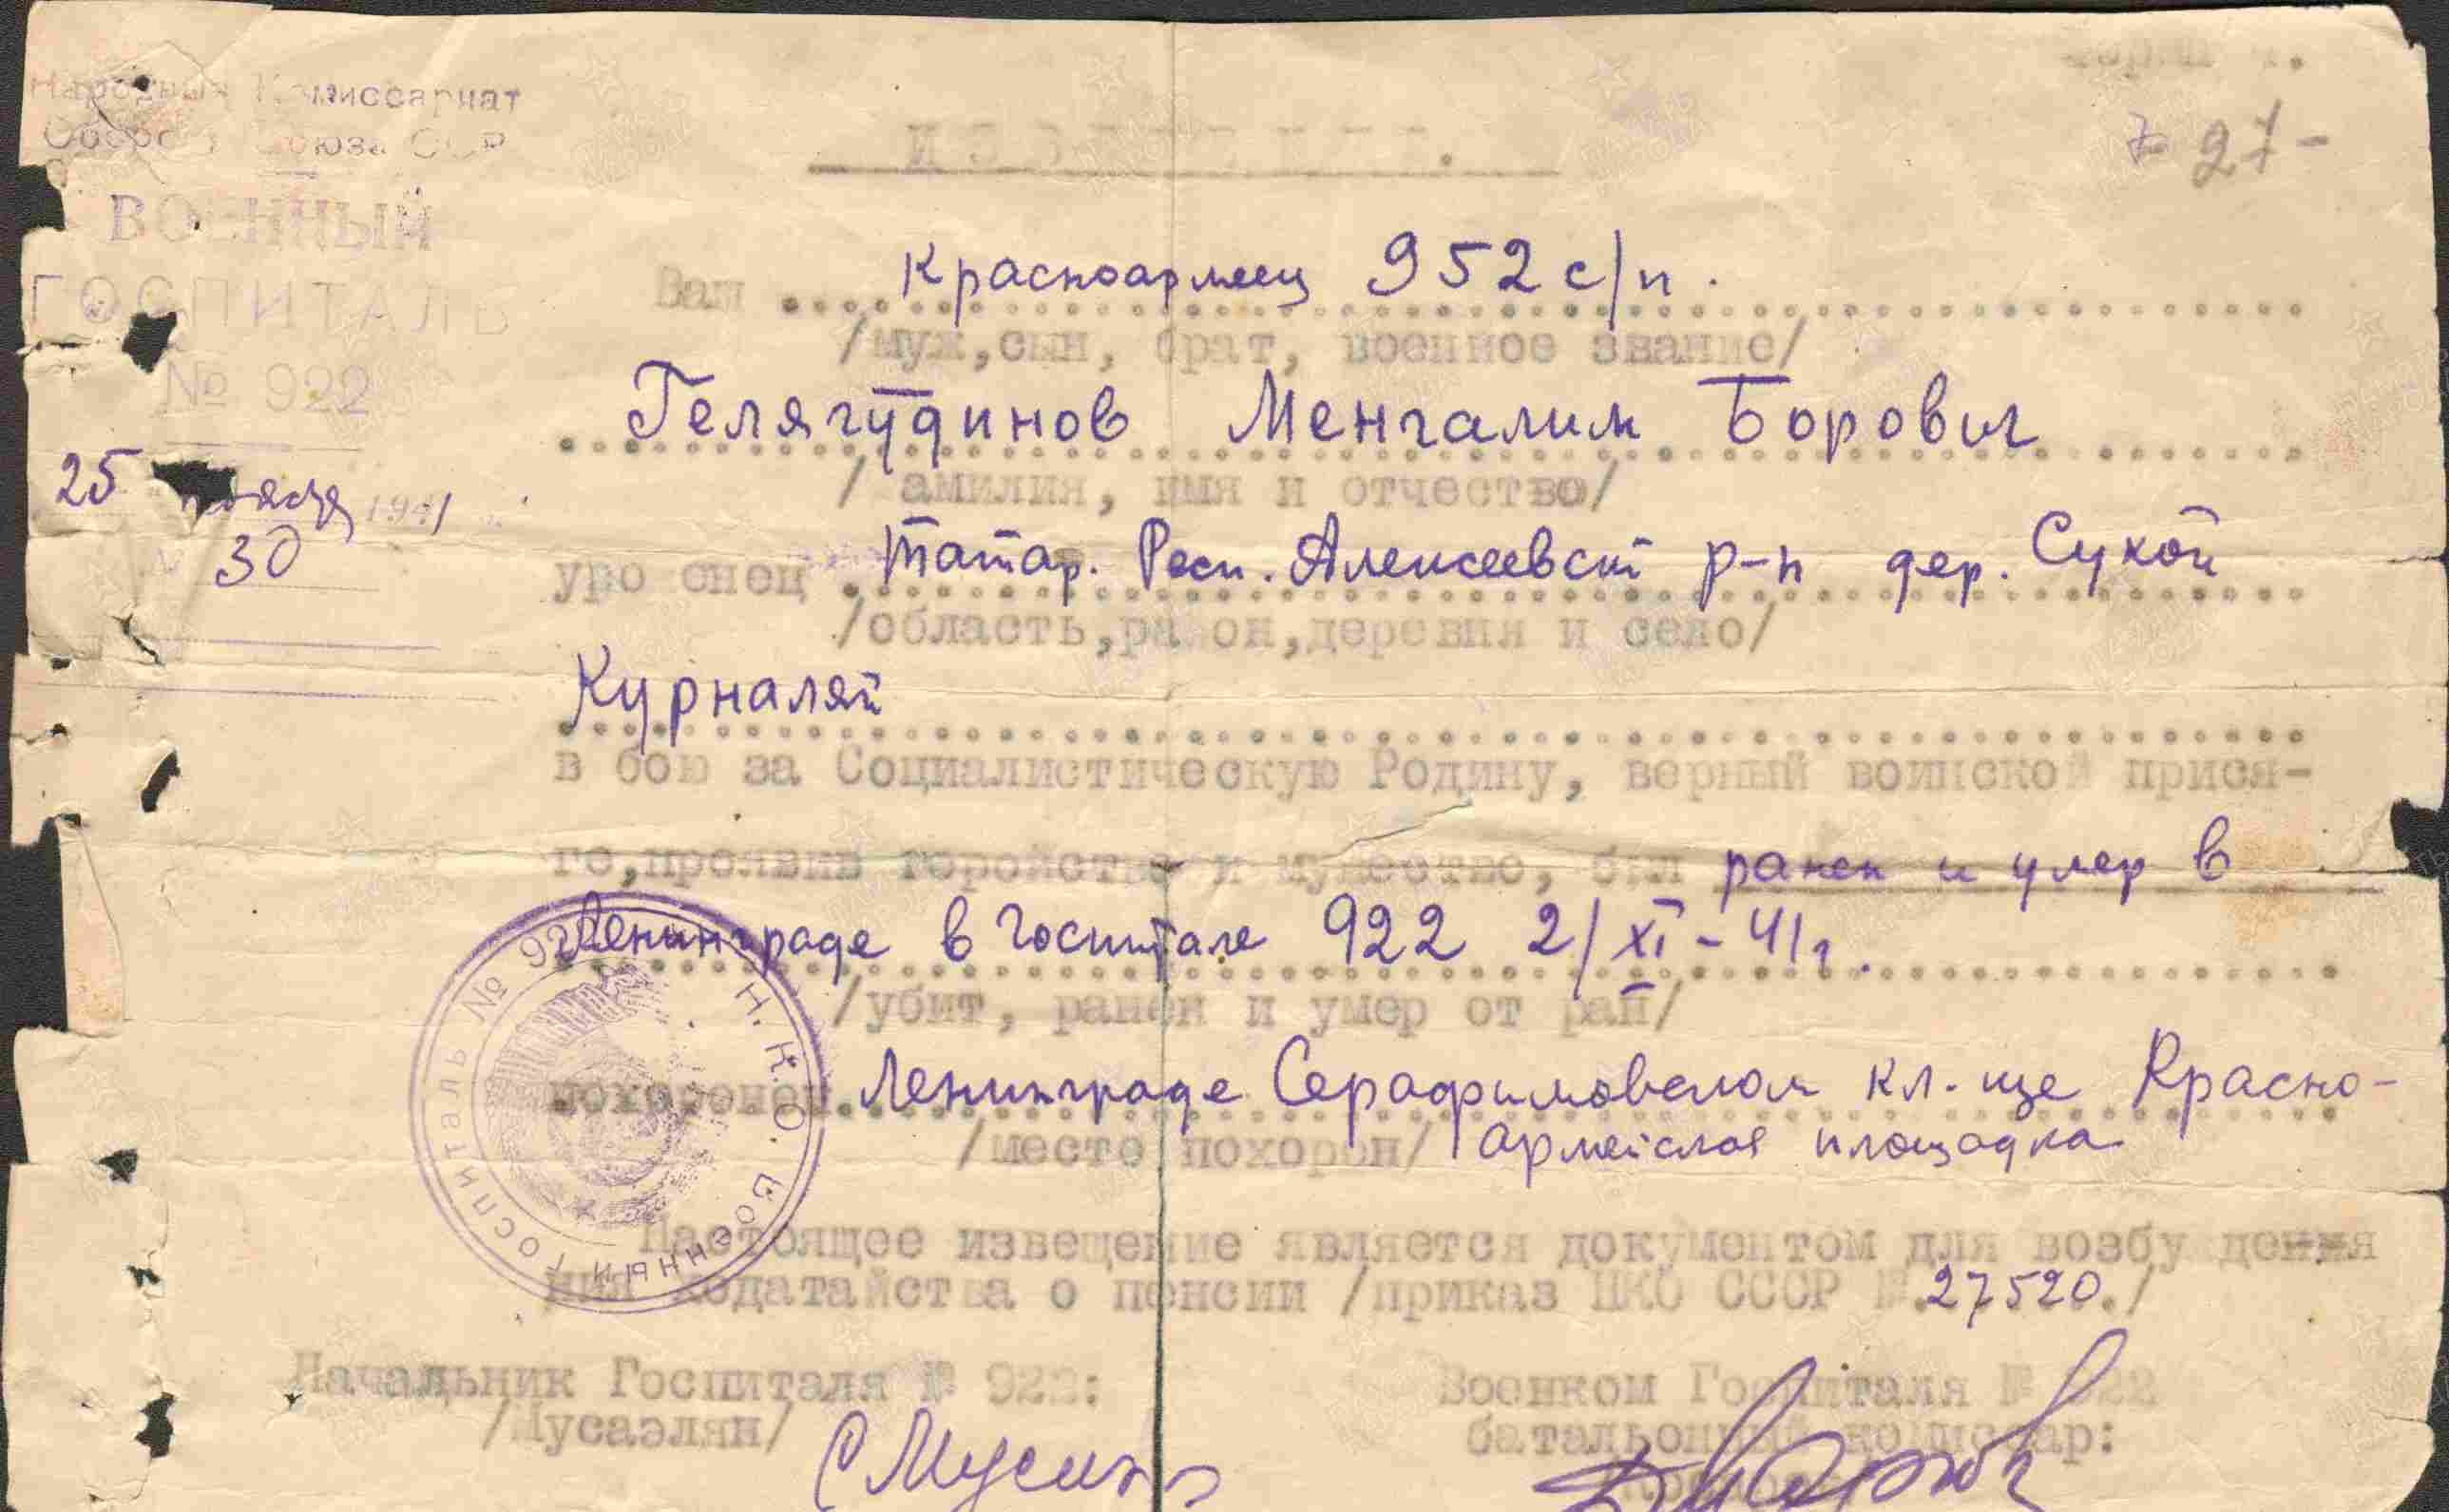 Народный Комиссариат
Обороны Союза ССР
ВОЕННЫЙ
ГОСПИТАЛЬ
№ 922
25 ноября 1941
30
Форма 4.
7 27-
ИЗВЕЩЕНИЕ.
Ваш красноармеец 952 с/п.
/муж, сын, брат, военное звание/
Гелягудинов Менгалим Борович
/ амилия, имя и отчество/
уро енец Татар. Респ. Алексеевск р-н дер. Сухой
/область, ра он, деревня и село/
Курналяй
в бою за Социалистическую Родину, верный воинской прися-
ге, проявив геройство и мужество, был ранен и умер в
Ленинграде в госпитале 922 2/XI-41г.
/убит, ранен и умер от ран/
похоронен Ленинграде Серафимовском кл-ще Красно-
/место похорон/ армейская площадка
Настоящее извещение является документом для возбу дения
ния ходатайства о пенсии /приказ НКО СССР № 27520./
Н.К.О. Военный Госпиталь № 922
Начальник Госпиталя № 922:
/Мусаэлян/
Военком Госпиталя № 922
батальонный комиссар: